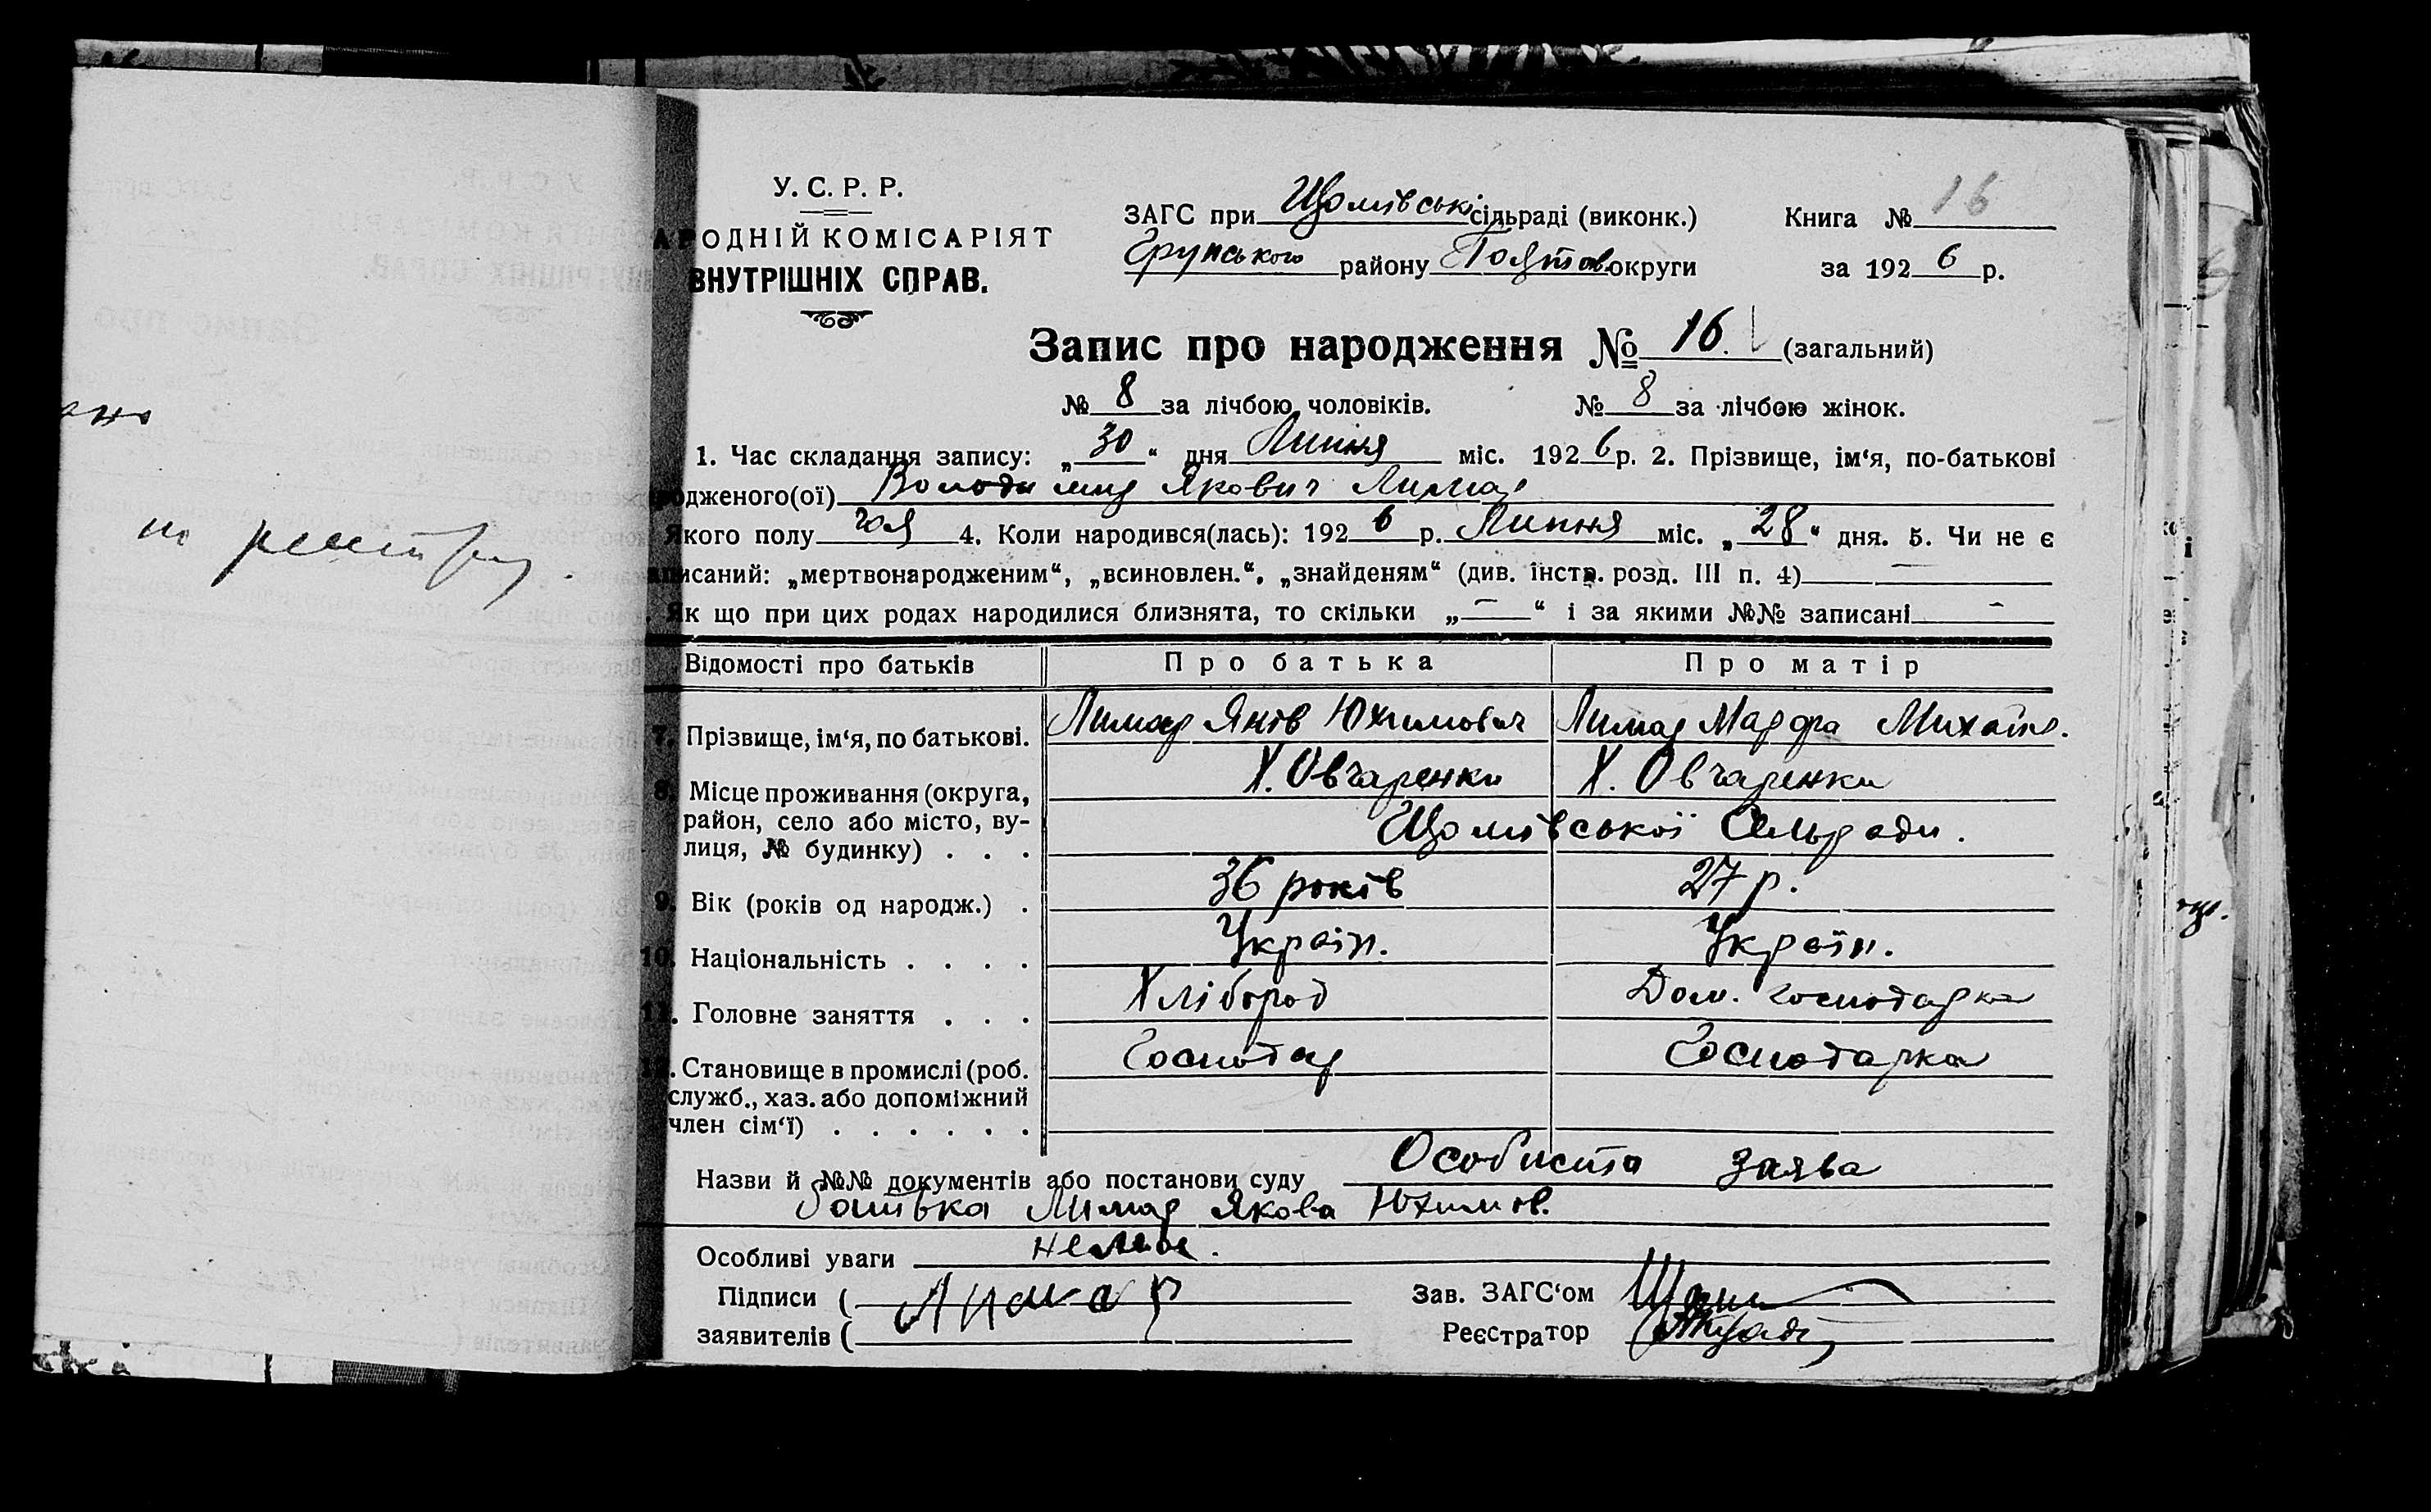 У. С. Р. Р.
АРОДНІЙ КОМІСАРІЯТ
ВНУТРІШНІХ СПРАВ.
ЗАГС при Щомівські сільраді (виконк.) Книга № 16
Грунського району Полтов округи за 1926 р.
Запис про народження № 16. (загальний)
№ 8 за лічбою чоловіків. № 8 за лічбою жінок.
1. Час складання запису: „30“ дня Липня міс. 1926 р. 2. Прізвище, ім‘я, по-батькові
родженого(ої) Володимир Якович Лимар
Якого полу чол 4. Коли народився(лась): 1926 р. Липня міс. „28“ дня. 5. Чи не є
писаний: „мертвонародженим“, „всиновлен.“, „знайденям“ (див. інстр. розд. III п. 4) —
Як що при цих родах народилися близнята, то скільки „—“ і за якими №№ записані —
Відомості про батьків Про батька Про матір
7. Прізвище, ім‘я, по батькові. Лимар Яків Юхимович Лимар Марфа Михайл.
8. Місце проживання (округа, Х. Овчаренки Х. Овчаренки
район, село або місто, ву- Щомівської Сільради.
лиця, № будинку) . . .
9. Вік (років од народж.) . 36 років 27 р.
10. Національність . . . . Україн. Україн.
11. Головне заняття . . . Хлібороб Дом. господарка
. Становище в промислі (роб. Господар Господарка
служб., хаз. або допоміжний
член сім‘ї) . . . . . .
Назви й №№ документів або постанови суду Особиста заява
батька Лимар Якова Юхимов.
Особливі уваги немає.
Підписи ( Лимар Зав. ЗАГС‘ом
заявителів ( Реєстратор